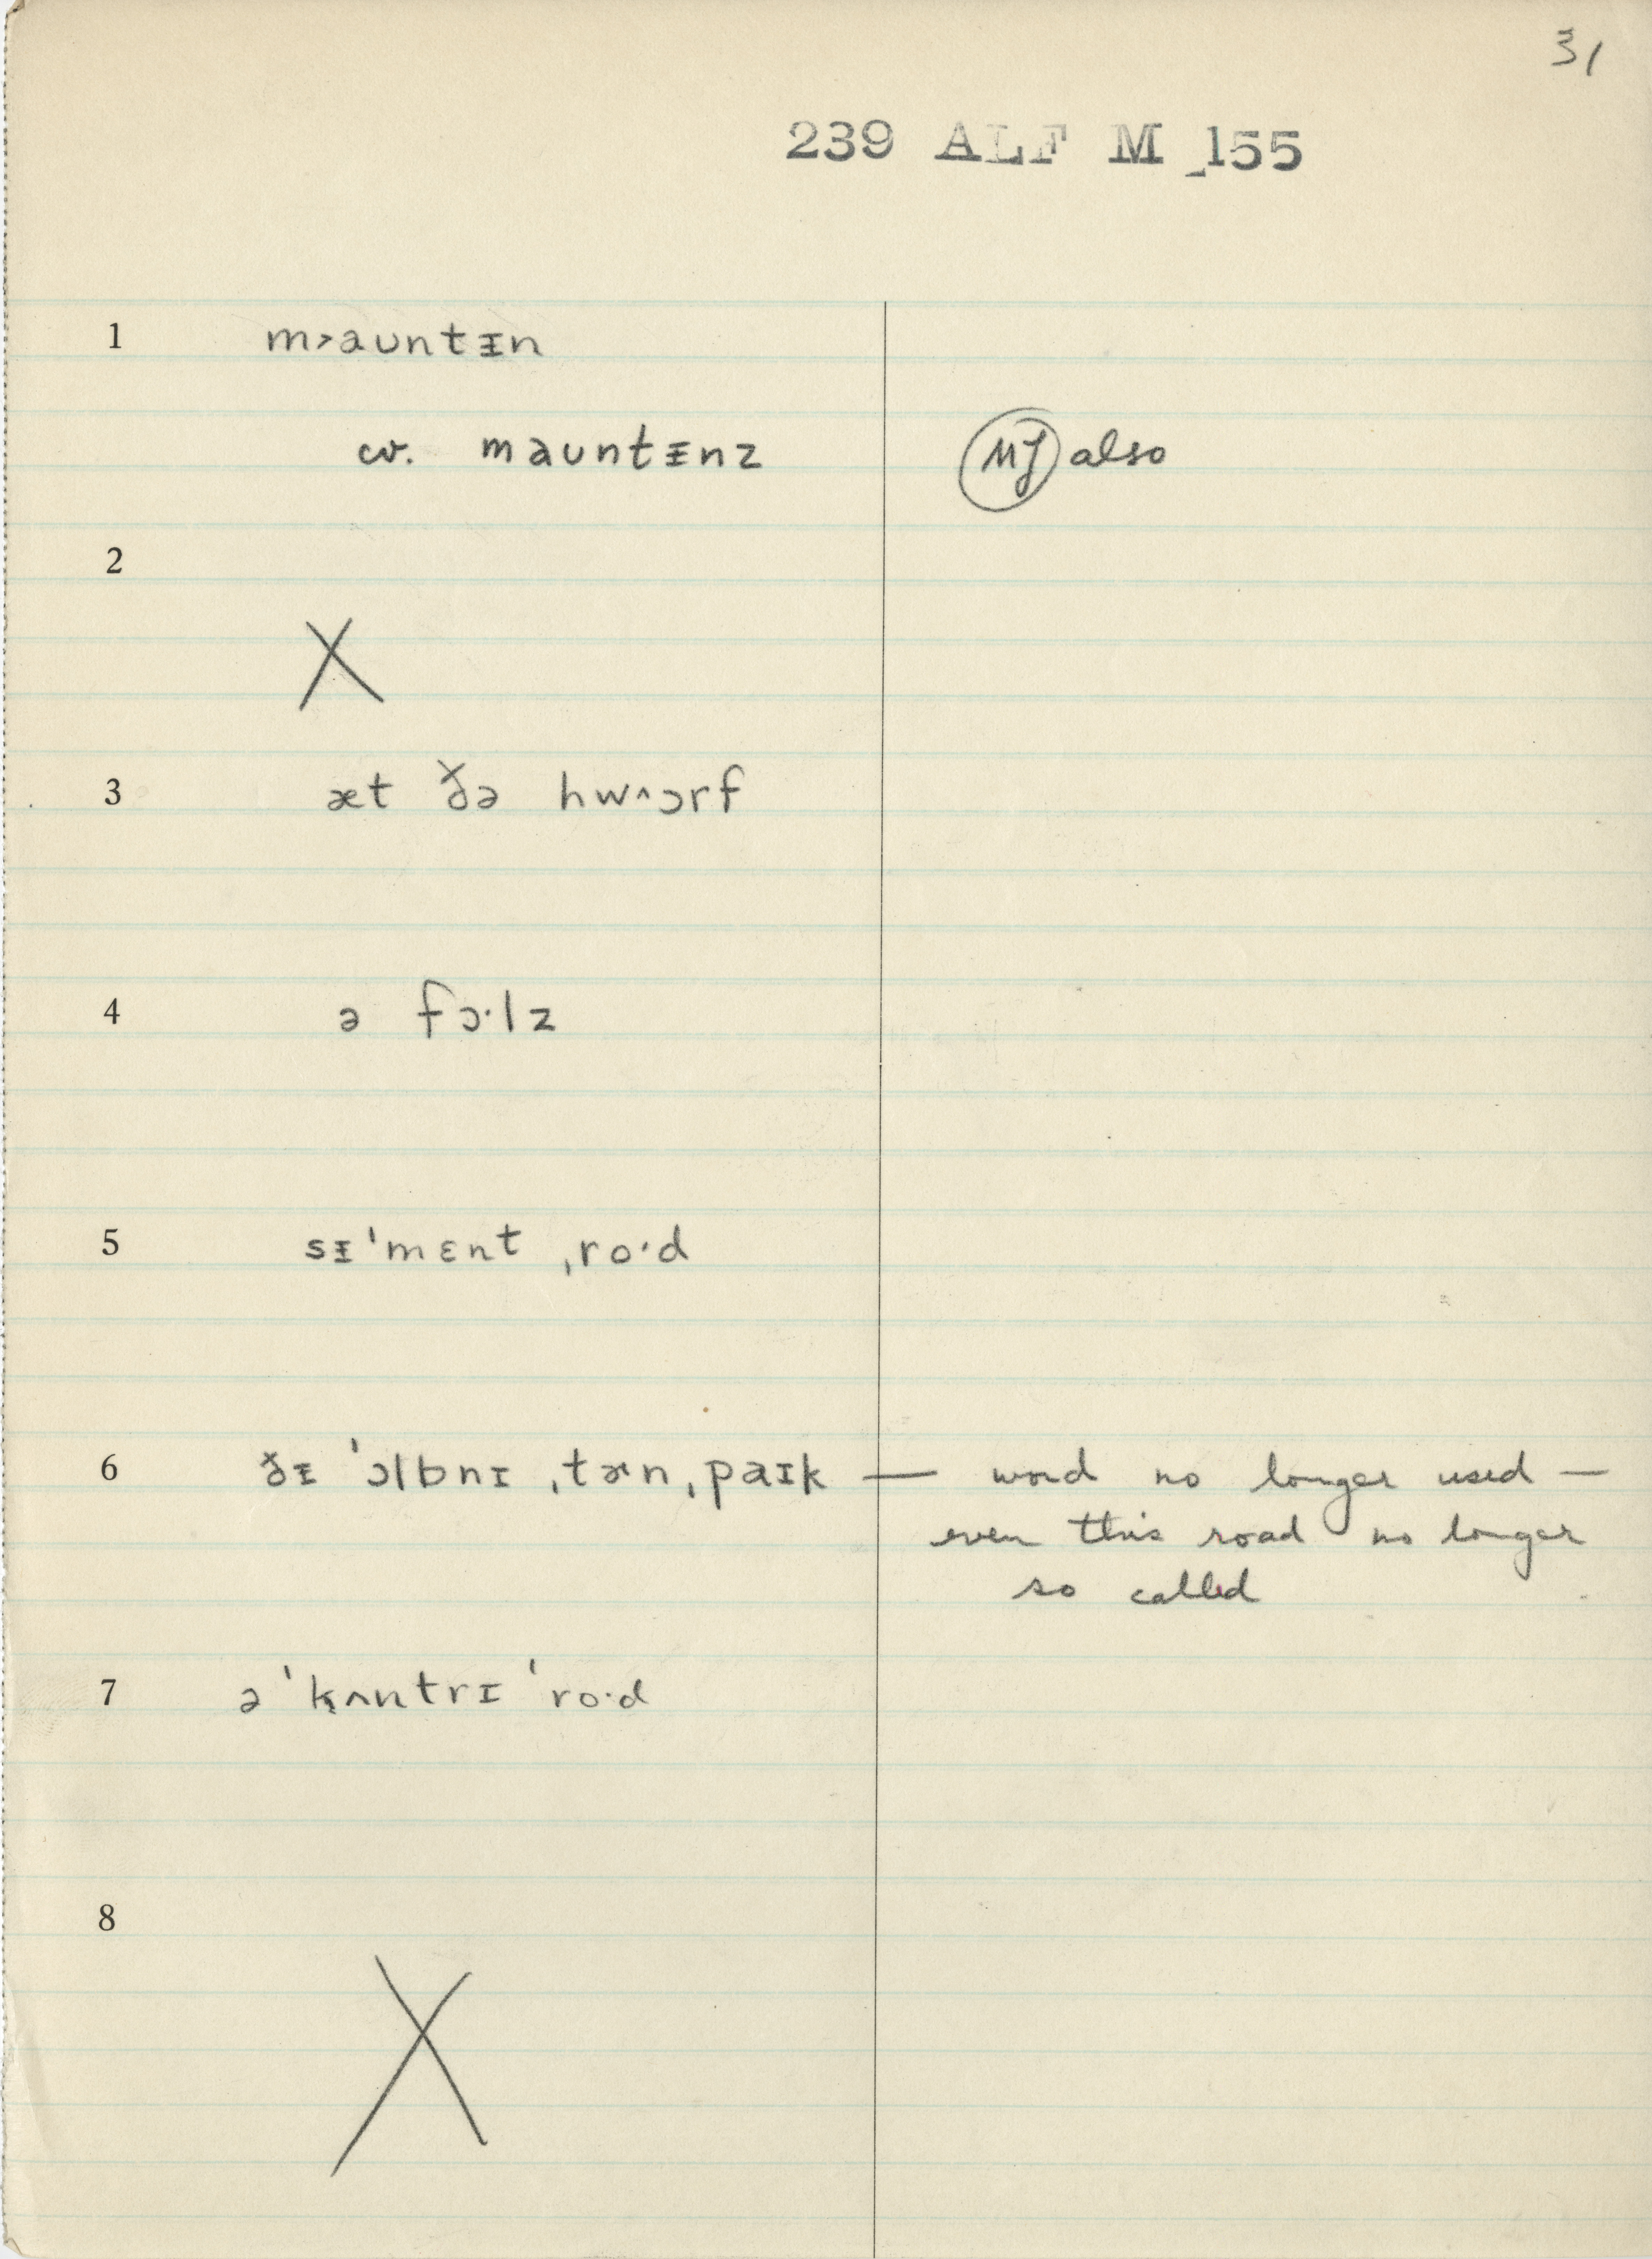 31
239 ALF M 155
1 m˃aʊntᵻn
cv. maʊntᵻnz MJ also
2
X
3 æt ðə hw˄ɔrf
4 ə fɔ·lz
5 sᵻˈmɛnt ˌro·d
6 ðᵻ ˈɔlbnɪ ˌtɚnˌpaɪk — word no longer used —
even this road no longer
so called
7 ə ˈk̬ʌntrɪ ˈro·d
8
X